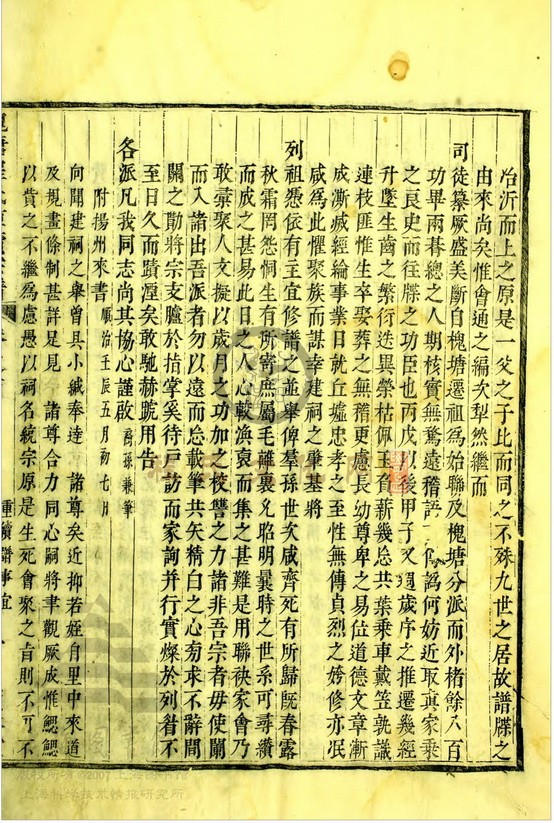 冶沂而上之原是一父之子比而同之不殊九世之居故譜牒之
由來尚矣惟會通之編次犁然繼而
司徒纂厥盛美斷自槐塘遷祖為始聯及槐塘分派而外楮餘八百
功畢兩朞總之人期核實無騖遠稽語 偽為何妨近取真家乘
之良史而往牒之功臣也丙戊以後甲子又 歲序之推遷幾經
升墜生齒之繁衍迭異榮枯佩玉 薪幾忘共葉乘車戴笠孰識
連枝匪惟生卒娶葬之無稽更慮長幼尊卑之易位道德文章漸
成澌滅經綸事業日就丘墟忠孝之至性無傳貞烈之姱修亦泯
咸為此懼聚族而謀幸建祠之肇基將
列祖憑依有主宜修譜之並舉俾羣孫世次咸齊死有所歸既春露
秋霜罔怨恫生有所寄庶屬毛離裏允昭明曩時之世系可尋纘
而成之甚易此日之人心較渙裒而集之甚難是用聯袂家會乃
敢彙聚人文擬以歲月之功加之校讐之力諸非吾宗者毋使闌
而入諸出吾派者勿以遠而忘載筆共矢精白之心匆求不辭間
關之勩將宗支臚於指掌奚待戶訪而家詢并行實燦於列眉不
至日久而蹟湮矣敢馳赫蹏用告
各派凡我同志尚其協心謹啟 裔孫兼筆
附揚州來書 順治壬辰五月初七月
向聞建祠之舉曾具小緘奉達 諸尊矣近抑若姪自里中來道
及規畫條制甚詳足見 諸尊合力同心嗣將聿觀厥成惟鰓鰓
以貲之不繼為慮愚以祠名統宗原是生死會聚之旨則不可不
重續譜事宜
©2007 上海图书馆
上海科学技术情报研究所